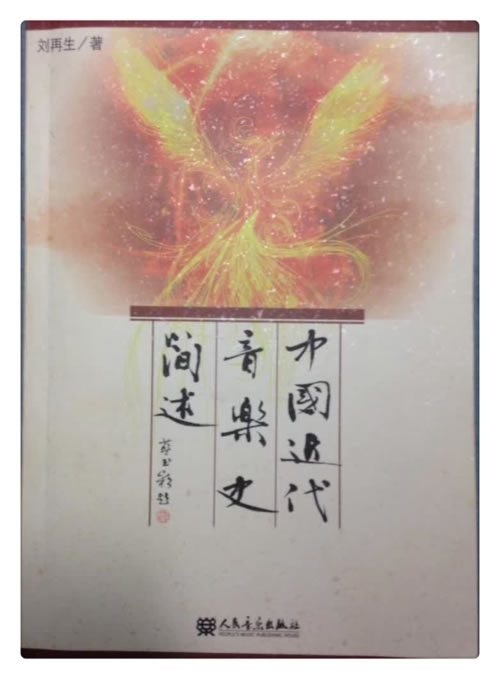 刘再生／著
中國近代
音樂史
简述
人民音乐出版社
PEOPLE'S MUSIC PUBLISHING HOUSE